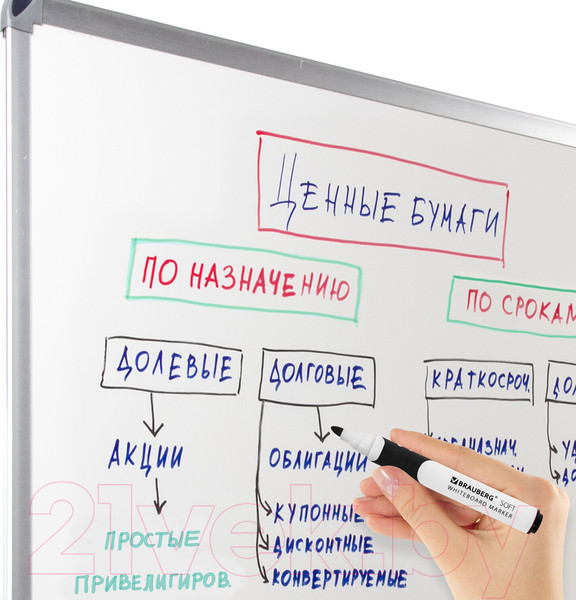 ЦЕННЫЕ БУМАГИ
ПО НАЗНАЧЕНИЮ
ПО СРОКАМ
ДОЛЕВЫЕ
ДОЛГОВЫЕ
КРАТКОСРОЧ.
АКЦИИ
ОБЛИГАЦИИ
ПРОСТЫЕ
ПРИВЕЛИГИРОВ.
КУПОННЫЕ
ДИСКОНТНЫЕ
КОНВЕРТИРУЕМЫЕ
BRAUBERG SOFT
WHITEBOARD MARKER
21vek.by